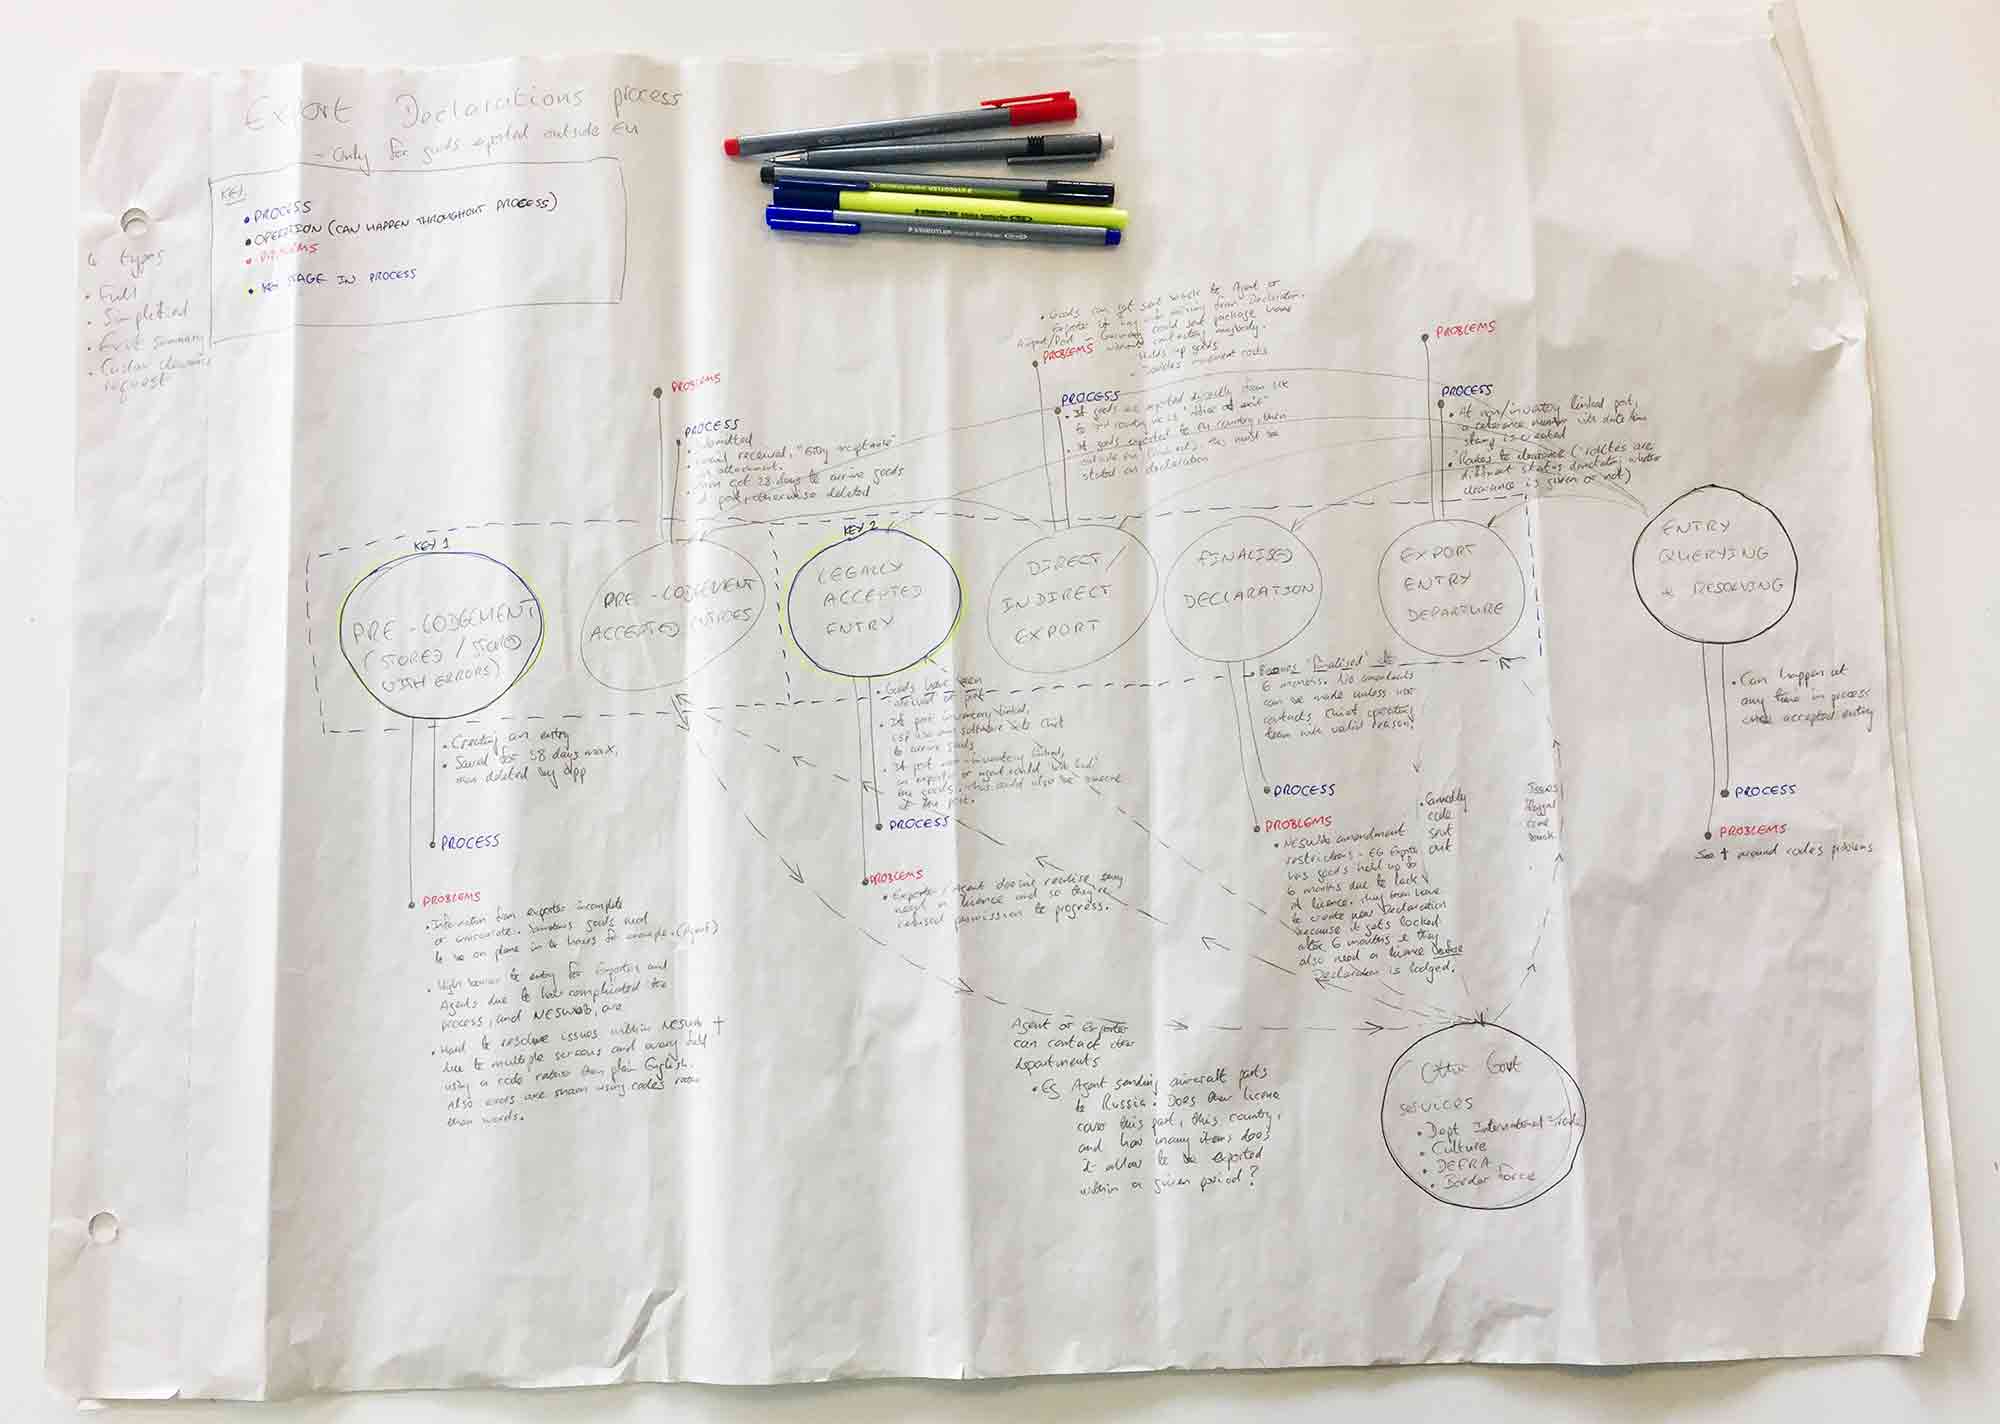 Export Declarations process
- Only for goods exported outside EU
KEY
• PROCESS
• OPERATION (CAN HAPPEN THROUGHOUT PROCESS)
• PROBLEMS
• KEY STAGE IN PROCESS
4 types
• Full
• Simplified
• Exit summary
• Custom clearance
request
STAEDTLER
KEY 1
PRE-LODGEMENT
(STORED / STORED
WITH ERRORS)
• Creating an entry
• Saved for 58 days max,
then deleted by app
PROCESS
PROBLEMS
• Information from exporter incomplete
or inaccurate. Sometimes goods need
to be on plane in hours for example. (Agent)
• High barrier to entry for Exporters and
Agents due to how complicated the
process, and NESWEB, are
• Hard to resolve issues within NESWEB †
due to multiple screens and every field
using a code rather than plain English.
Also errors are shown using codes rather
than words.
PROBLEMS
PROCESS
• Submitted
• Email received, "Entry acceptance"
as attachment.
• Then got 28 days to arrive goods
at port, otherwise deleted
PRE-LODGEMENT
ACCEPTED ENTRIES
KEY 2
LEGALLY
ACCEPTED
ENTRY
• Goods have been
arrived at port
• If port inventory linked,
CSP use own software into Chief
to arrive goods
• If port non-inventory linked,
an exporter or agent could
the goods. This could also be someone
at the port.
PROCESS
PROBLEMS
• Exporter / Agent doesn't realise they
need a licence and so they're
refused permission to progress.
• Goods can get sent back to Agent or
Exporter if missing from Declaration.
Airport/Port - Germany could send package home
without contacting anybody.
- Holds up goods
- Doubles movement costs
PROBLEMS
PROCESS
• If goods are exported directly from UK
to 3rd country, UK is "office of exit"
• If goods exported to EU country, then
outside EU (indirect), this must be
stated on declaration
DIRECT/
INDIRECT
EXPORT
FINALISED
DECLARATION
• Becomes 'finalised' at
6 months. No amendments
can be made unless user
contacts Chief operating
team with valid reason.
PROCESS
PROBLEMS
• NESWeb amendment
restrictions - EG Exporter
has goods held up for
6 months due to lack
of licence. They then have
to create new Declaration
because it gets locked
after 6 months & they
also need a licence before
Declaration is lodged.
PROBLEMS
PROCESS
• At non/inventory linked port,
a reference number with date/time
stamp is created
• Routes to clearance (routes are
different status donotating whether
clearance is given or not)
EXPORT
ENTRY
DEPARTURE
ENTRY
QUERYING
+ RESOLVING
• Can happen at
any time in process
once accepted entry
PROCESS
PROBLEMS
See † around codes problems
• Commodity
code
sent
out
Issues
flagged
come
back
Agent or Exporter
can contact other
departments
• Eg Agent sending aircraft parts
to Russia. Does their licence
cover this part, this country,
and how many items does
it allow to be exported
within a given period?
Other Govt
services
• Dept International Trade
• Culture
• DEFRA
• Border Force